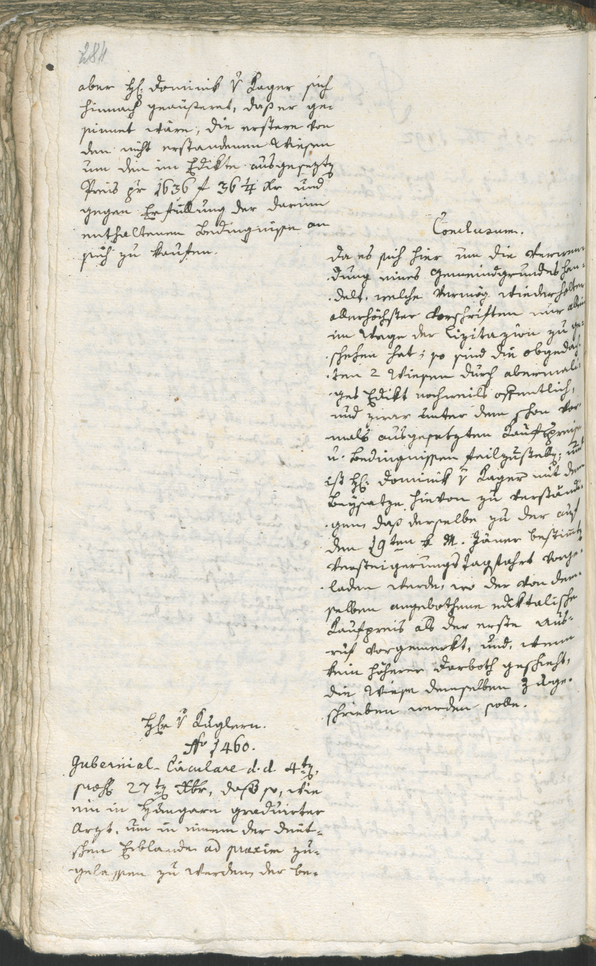 284
aber H. Dominik v Kager sich
hinnach geäusseret, daß er ge-
sinnet wäre, die erstere von
den nicht erstandenen Wiesen
um den im Edikte ausgesezten
Preis pr 1636 f 36¼ Kr und
gegen Erfüllung der darinn
enthaltenen Bedingnisse an
sich zu kaufen.
Conclusum.
da es sich hier um die Verwen-
dung eines Gemeindgrundes han-
delt, welche vermög wiederholten
allerhöchster Vorschriften nur allein
im Wege der Lizitazion zu ge-
schehen hat; so sind die obgedach-
ten 2 Wiesen durch abermali-
ges Edikt nochmals öffentlich,
und zwar unter dem schon vor-
mals ausgesetzten Kaufspreise
u. Bedingnissen feilzustellen; und
ist H. Dominik v Kager mit dem
Beysatze hievon zu verständi-
gen, daß derselbe zu der auf
den 19ten k. M. Jäner bestimmten
Versteigerungstagsfahrt vorge-
laden werde, wo der von dem-
selben angebothene ediktalische
Kaufpreis als der erste Aus-
ruf vorgemerkt, und, wenn
kein höherer Anboth geschieht,
die Wiese demselben zuge-
schrieben werden solle.
H. v Kuglern.
No 1460.
Gubernial-Circulare d.d 4ten,
27ten Xbr, daß so, wie
ein in Hungarn graduirter
Arzt, um in einem der deut-
schen Erblande ad praxim zu-
gelassen zu werden, der be-